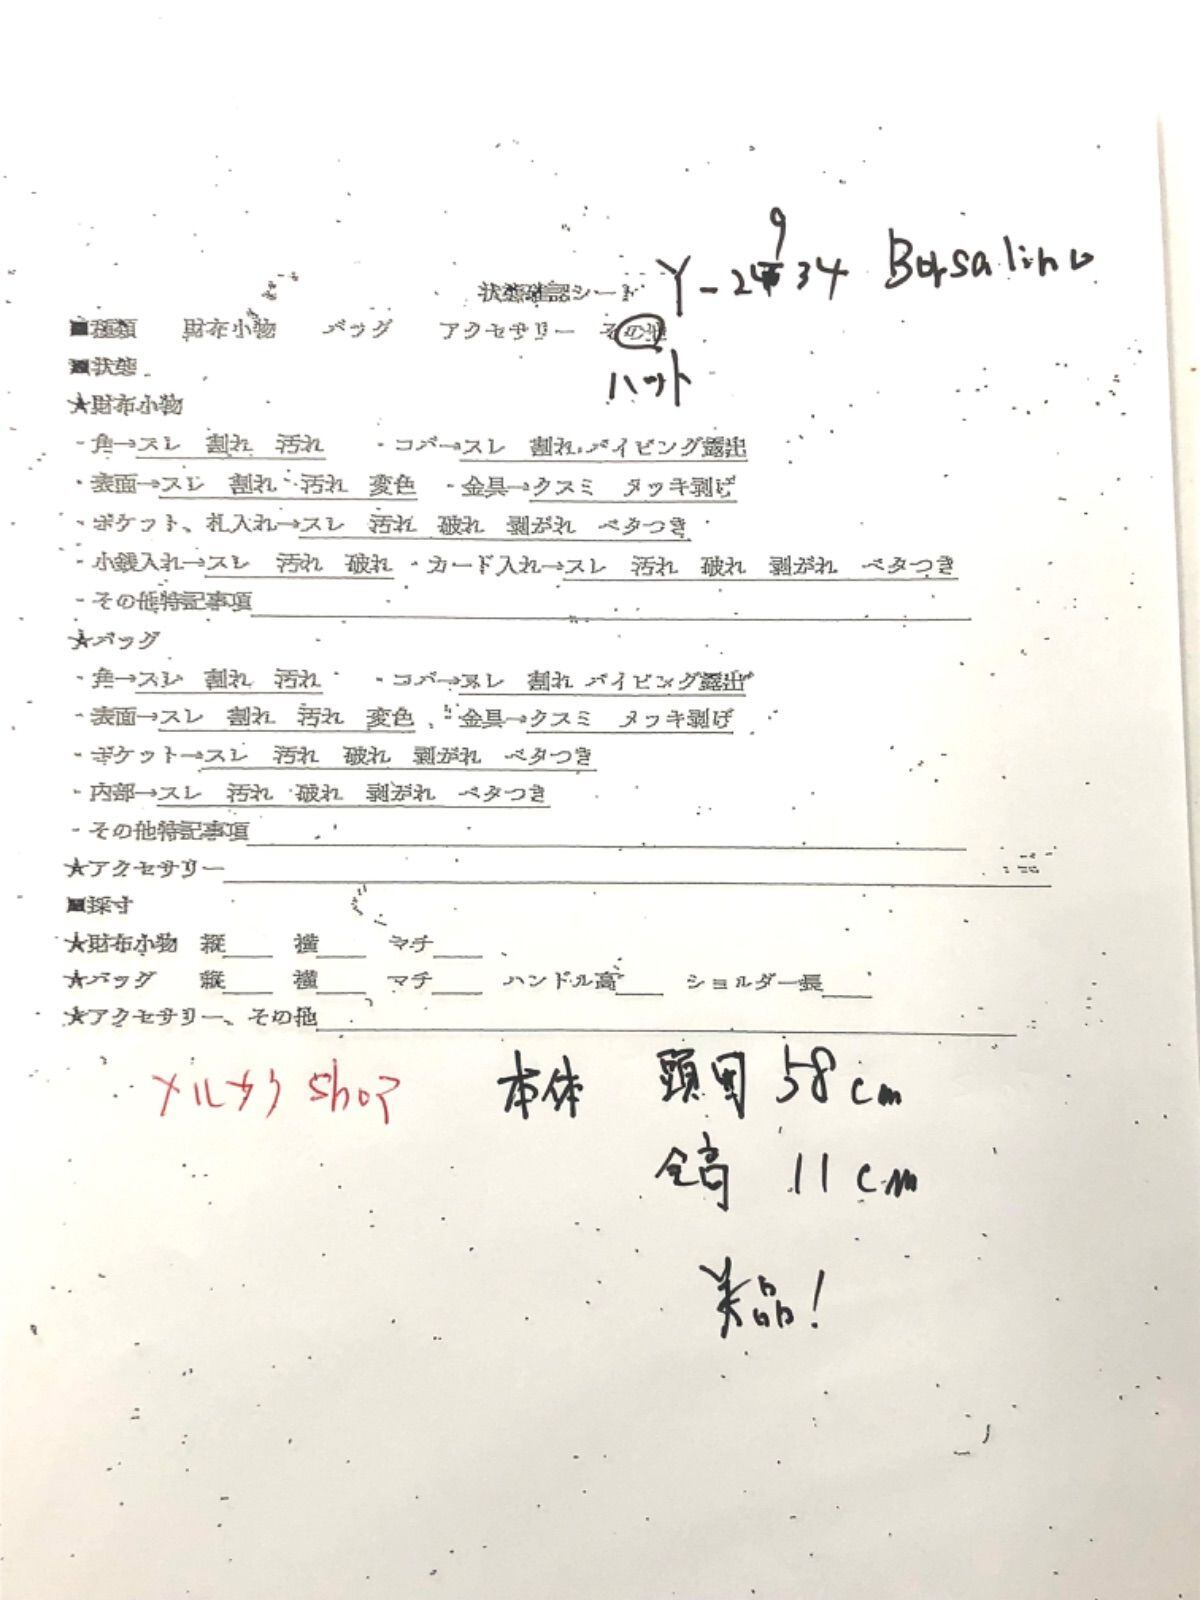 状態確認シート Y-2934 Borsalino
■種類 財布小物 バッグ アクセサリー その他
ハット
■状態
★財布小物
・角→スレ 割れ 汚れ ・コバ→スレ 割れ パイピング露出
・表面→スレ 割れ 汚れ 変色 ・金具→クスミ メッキ剥げ
・ポケット、札入れ→スレ 汚れ 破れ 剥がれ ベタつき
・小銭入れ→スレ 汚れ 破れ ・カード入れ→スレ 汚れ 破れ 剥がれ ベタつき
・その他特記事項
★バッグ
・角→スレ 割れ 汚れ ・コバ→スレ 割れ パイピング露出
・表面→スレ 割れ 汚れ 変色 ・金具→クスミ メッキ剥げ
・ポケット→スレ 汚れ 破れ 剥がれ ベタつき
・内部→スレ 汚れ 破れ 剥がれ ベタつき
・その他特記事項
★アクセサリー
■採寸
★財布小物 縦 横 マチ
★バッグ 縦 横 マチ ハンドル高 ショルダー長
★アクセサリー、その他
メルカリ shop 本体 頭周 58cm
全高 11cm
美品!